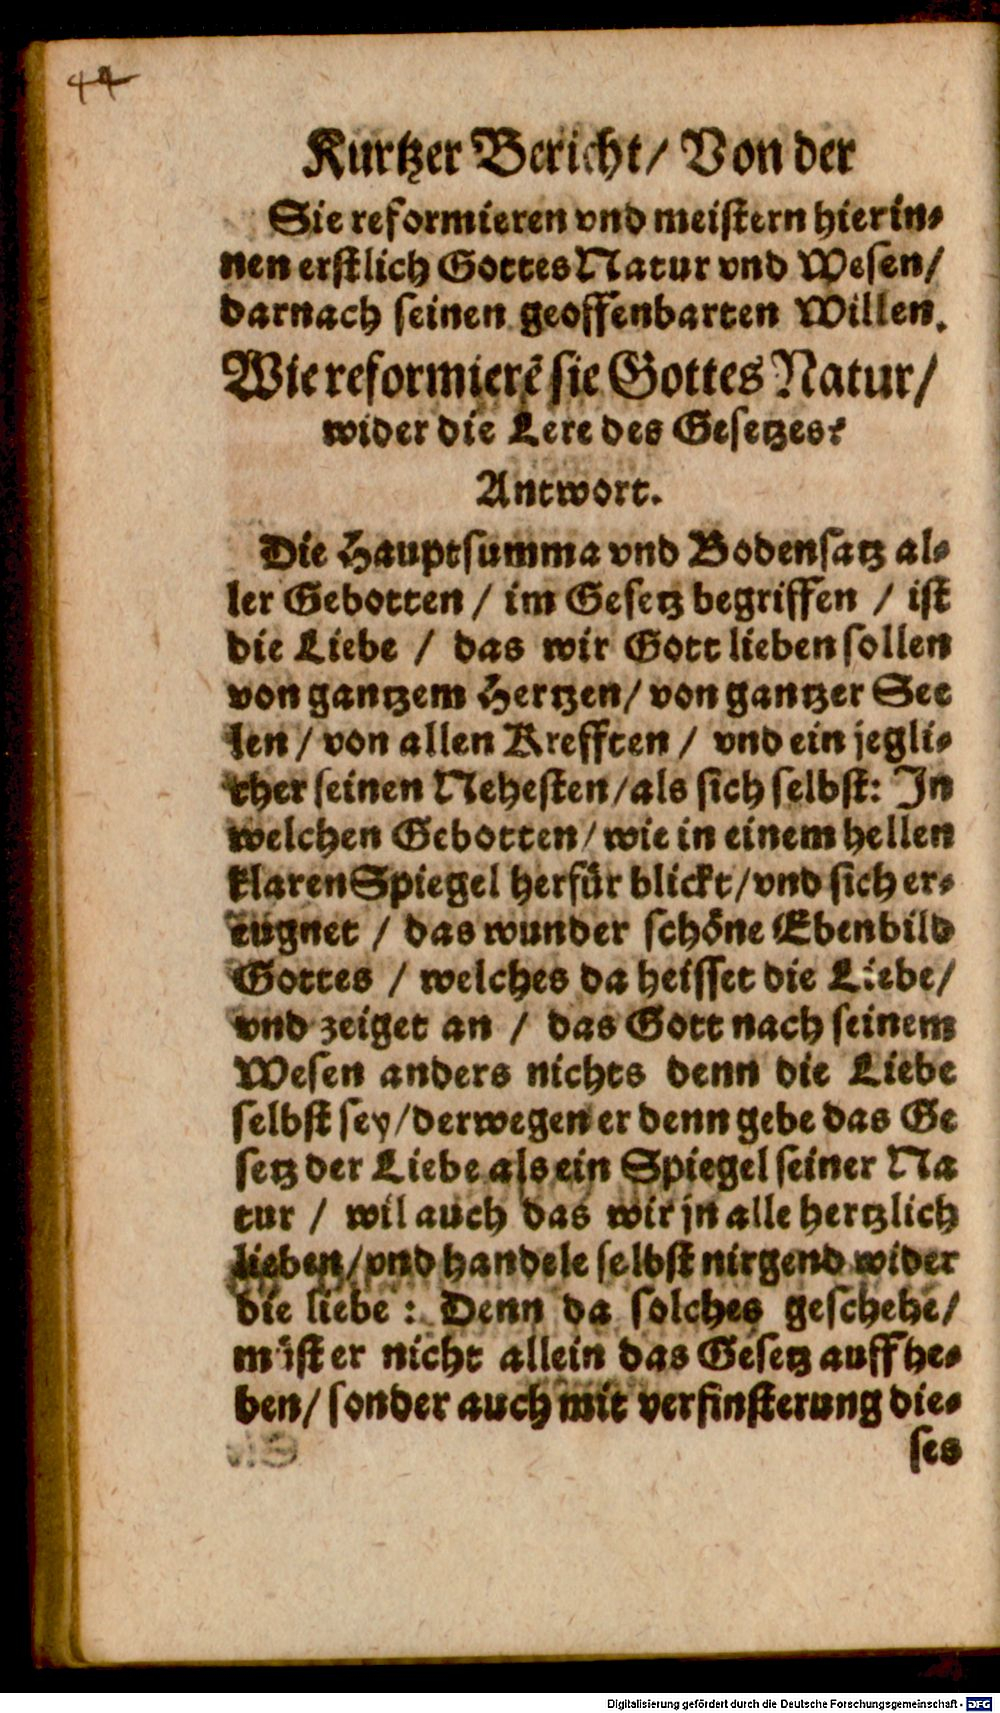 44
Kurtzer Bericht/ Von der
Sie reformieren vnd meistern hierin-
nen erstlich Gottes Natur vnd Wesen/
darnach seinen geoffenbarten Willen.
Wie reformierē sie Gottes Natur/
wider die Lere des Gesetzes?
Antwort.
Die Hauptsumma vnd Bodensatz al-
ler Gebotten / im Gesetz begriffen / ist
die Liebe / das wir Gott lieben sollen
von gantzem Hertzen/ von gantzer See
len / von allen Krefften / vnd ein jegli-
cher seinen Nehesten/als sich selbst: In
welchen Gebotten/ wie in einem hellen
klaren Spiegel herfür blickt/vnd sich er-
eugnet / das wunder schöne Ebenbild
Gottes / welches da heisset die Liebe/
vnd zeiget an / das Gott nach seinem
Wesen anders nichts denn die Liebe
selbst sey/derwegen er denn gebe das Ge
setz der Liebe als ein Spiegel seiner Na
tur / wil auch das wir jn alle hertzlich
lieben/vnd handele selbst nirgend wider
die liebe : Denn da solches geschehe/
müst er nicht allein das Gesetz auff he-
ben/ sonder auch mit verfinsterung die-
ses
Digitalisierung gefördert durch die Deutsche Forschungsgemeinschaft - DFG